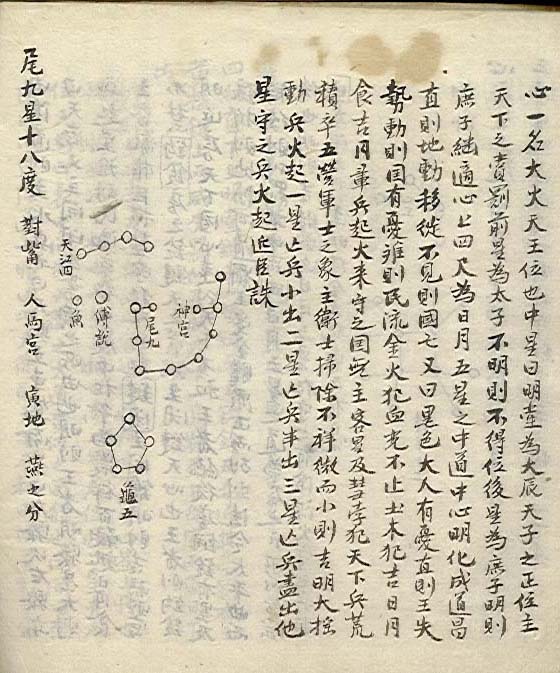 心一名大火天王位也中星曰明堂為大辰天子之正位主
天下之賞罰前星為太子不明則不得位後星為庶子明則
庶子継適心上四尺為日月五星之中道中心明化成道昌
直則地動移徙不見則國亡又曰黒色大人有憂直則王失
勢動則国有憂離則民流金火犯血光不止土木犯吉日月
食吉月暈兵起火来守之国無主客星及彗孛犯天下兵荒
積卒五營軍士之象主衛士掃除不祥微而小則吉明大揺
動兵火起一星亡兵小出二星亡兵半出三星亡兵盡出他
星守之兵火起近臣誅
神宮
尾九
龜五
傅説
魚
天江四
尾九星十八度 對觜 人馬宮 寅地 燕之分